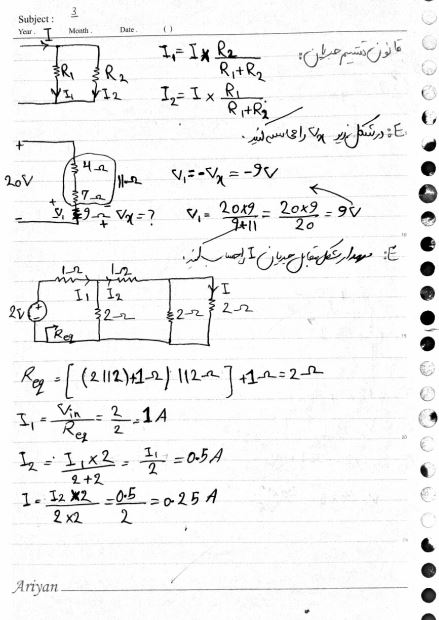 Subject : 3
Year . Month . Date . ( )
قانون تقسیم جریان:
I
R₁ R₂ I₁ I₂
I₁ = I × R₂/(R₁+R₂)
I₂ = I × R₁/(R₁+R₂)
E: در شکل زیر Vx را محاسبه کنید.
+ 20V -
4Ω
7Ω
11Ω
+ V₁ 9Ω - + Vx=?
V₁ = -Vx = -9V
V₁ = 20×9/(9+11) = 20×9/20 = 9V
E: مدار شکل مقابل جریان I را حساب کنید.
1Ω 1Ω
I₁ I₂ I
2V + - 2Ω 2Ω 2Ω
Req
Req = [(2||2)+1Ω)||2Ω]+1Ω=2Ω
I₁ = Vin/Req = 2/2 = 1A
I₂ = I₁×2/(2+2) = I₁/2 = 0.5A
I = I₂×2/(2×2) = 0.5/2 = 0.25A
Ariyan